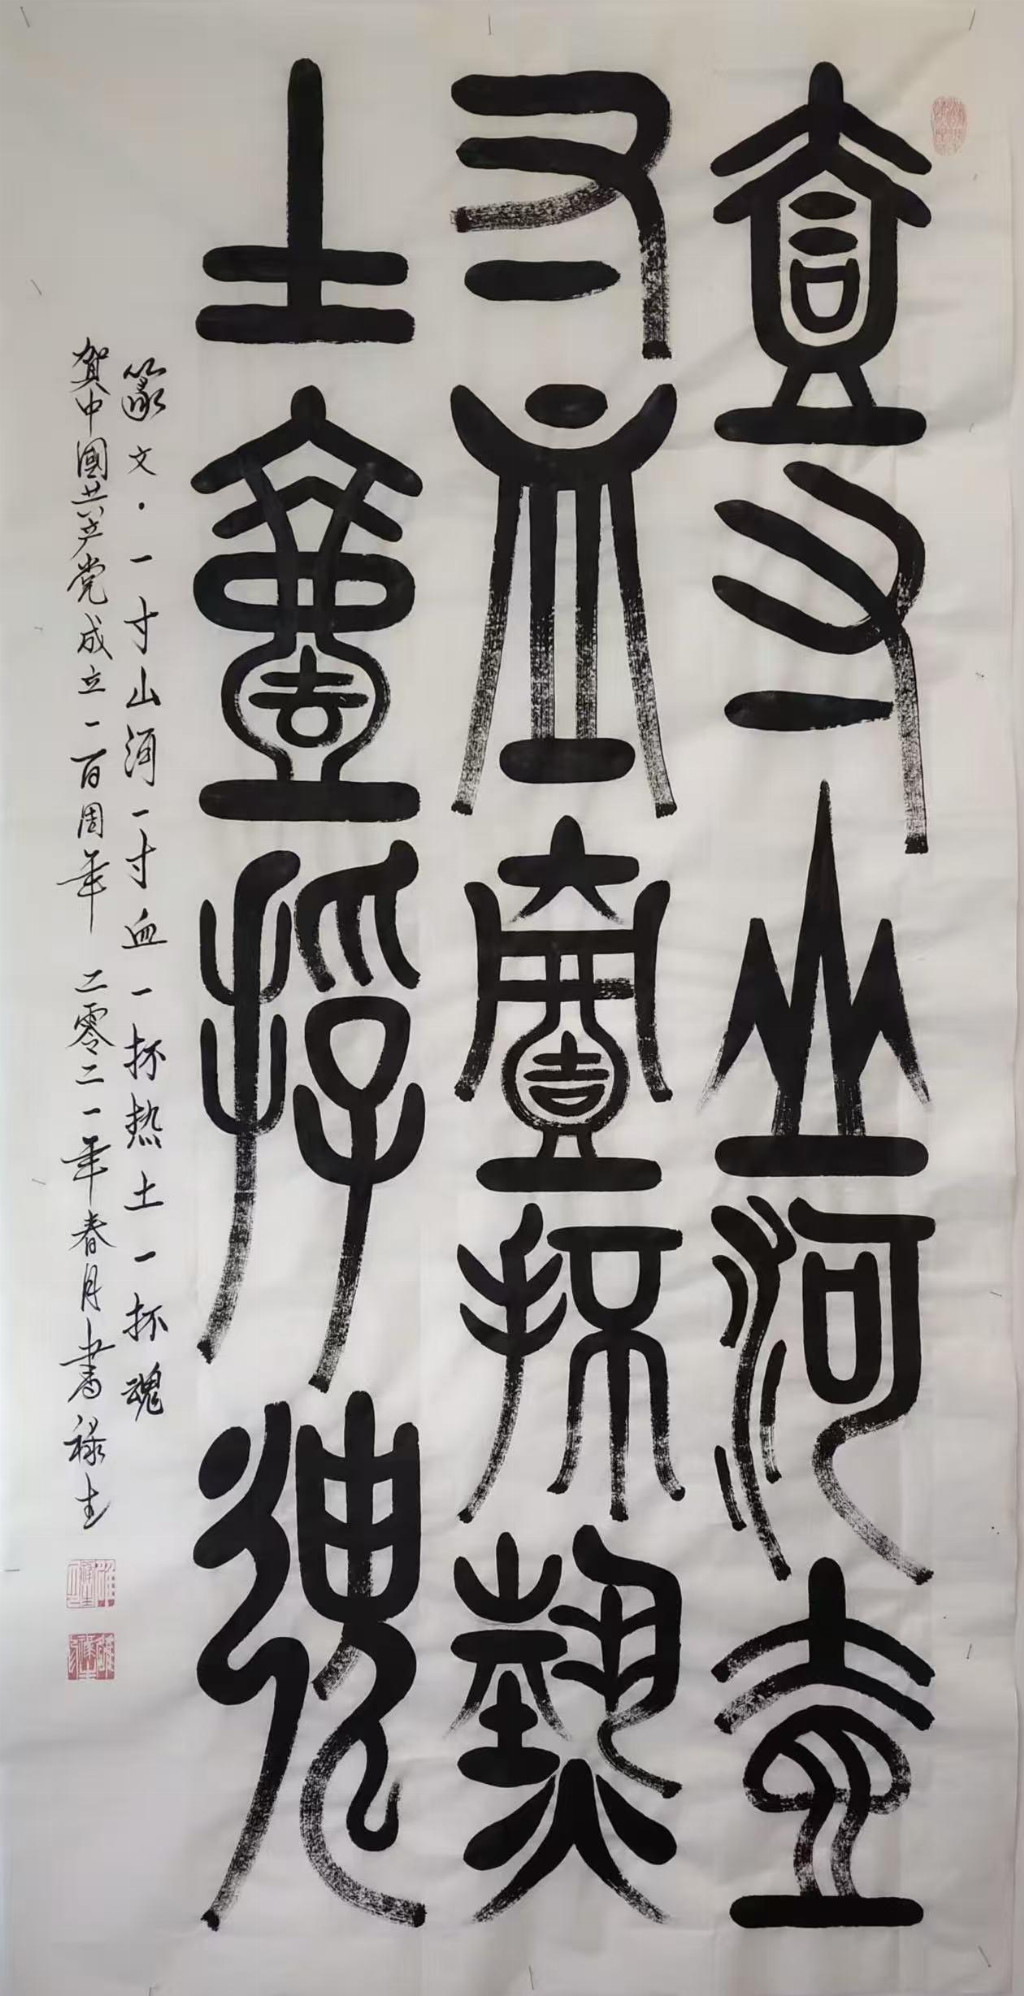 壹寸山河壹
寸血壹抔熱
土壹捊魂
篆文·一寸山河一寸血一抔热土一抔魂
贺中國共产党成立一百周年 二零二一年春月書禄生